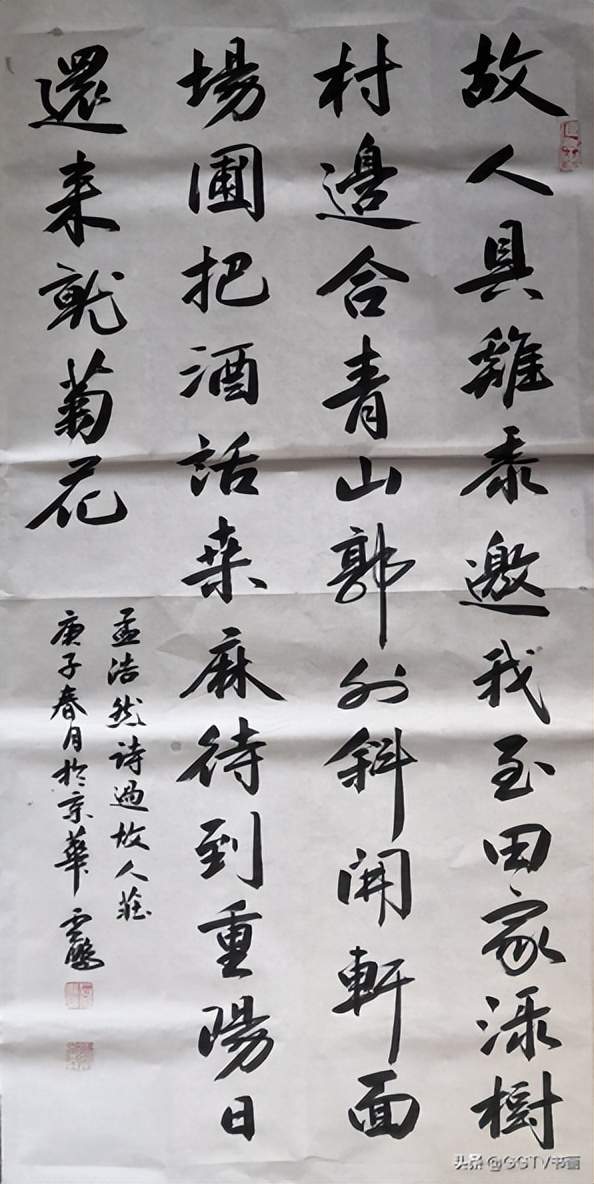 故人具雞黍邀我至田家渌樹
村邊合青山郭外斜開軒面
場圃把酒話桑麻待到重陽日
還来就菊花
孟浩然诗過故人莊
庚子春月於京華
头条 @GGTV书画